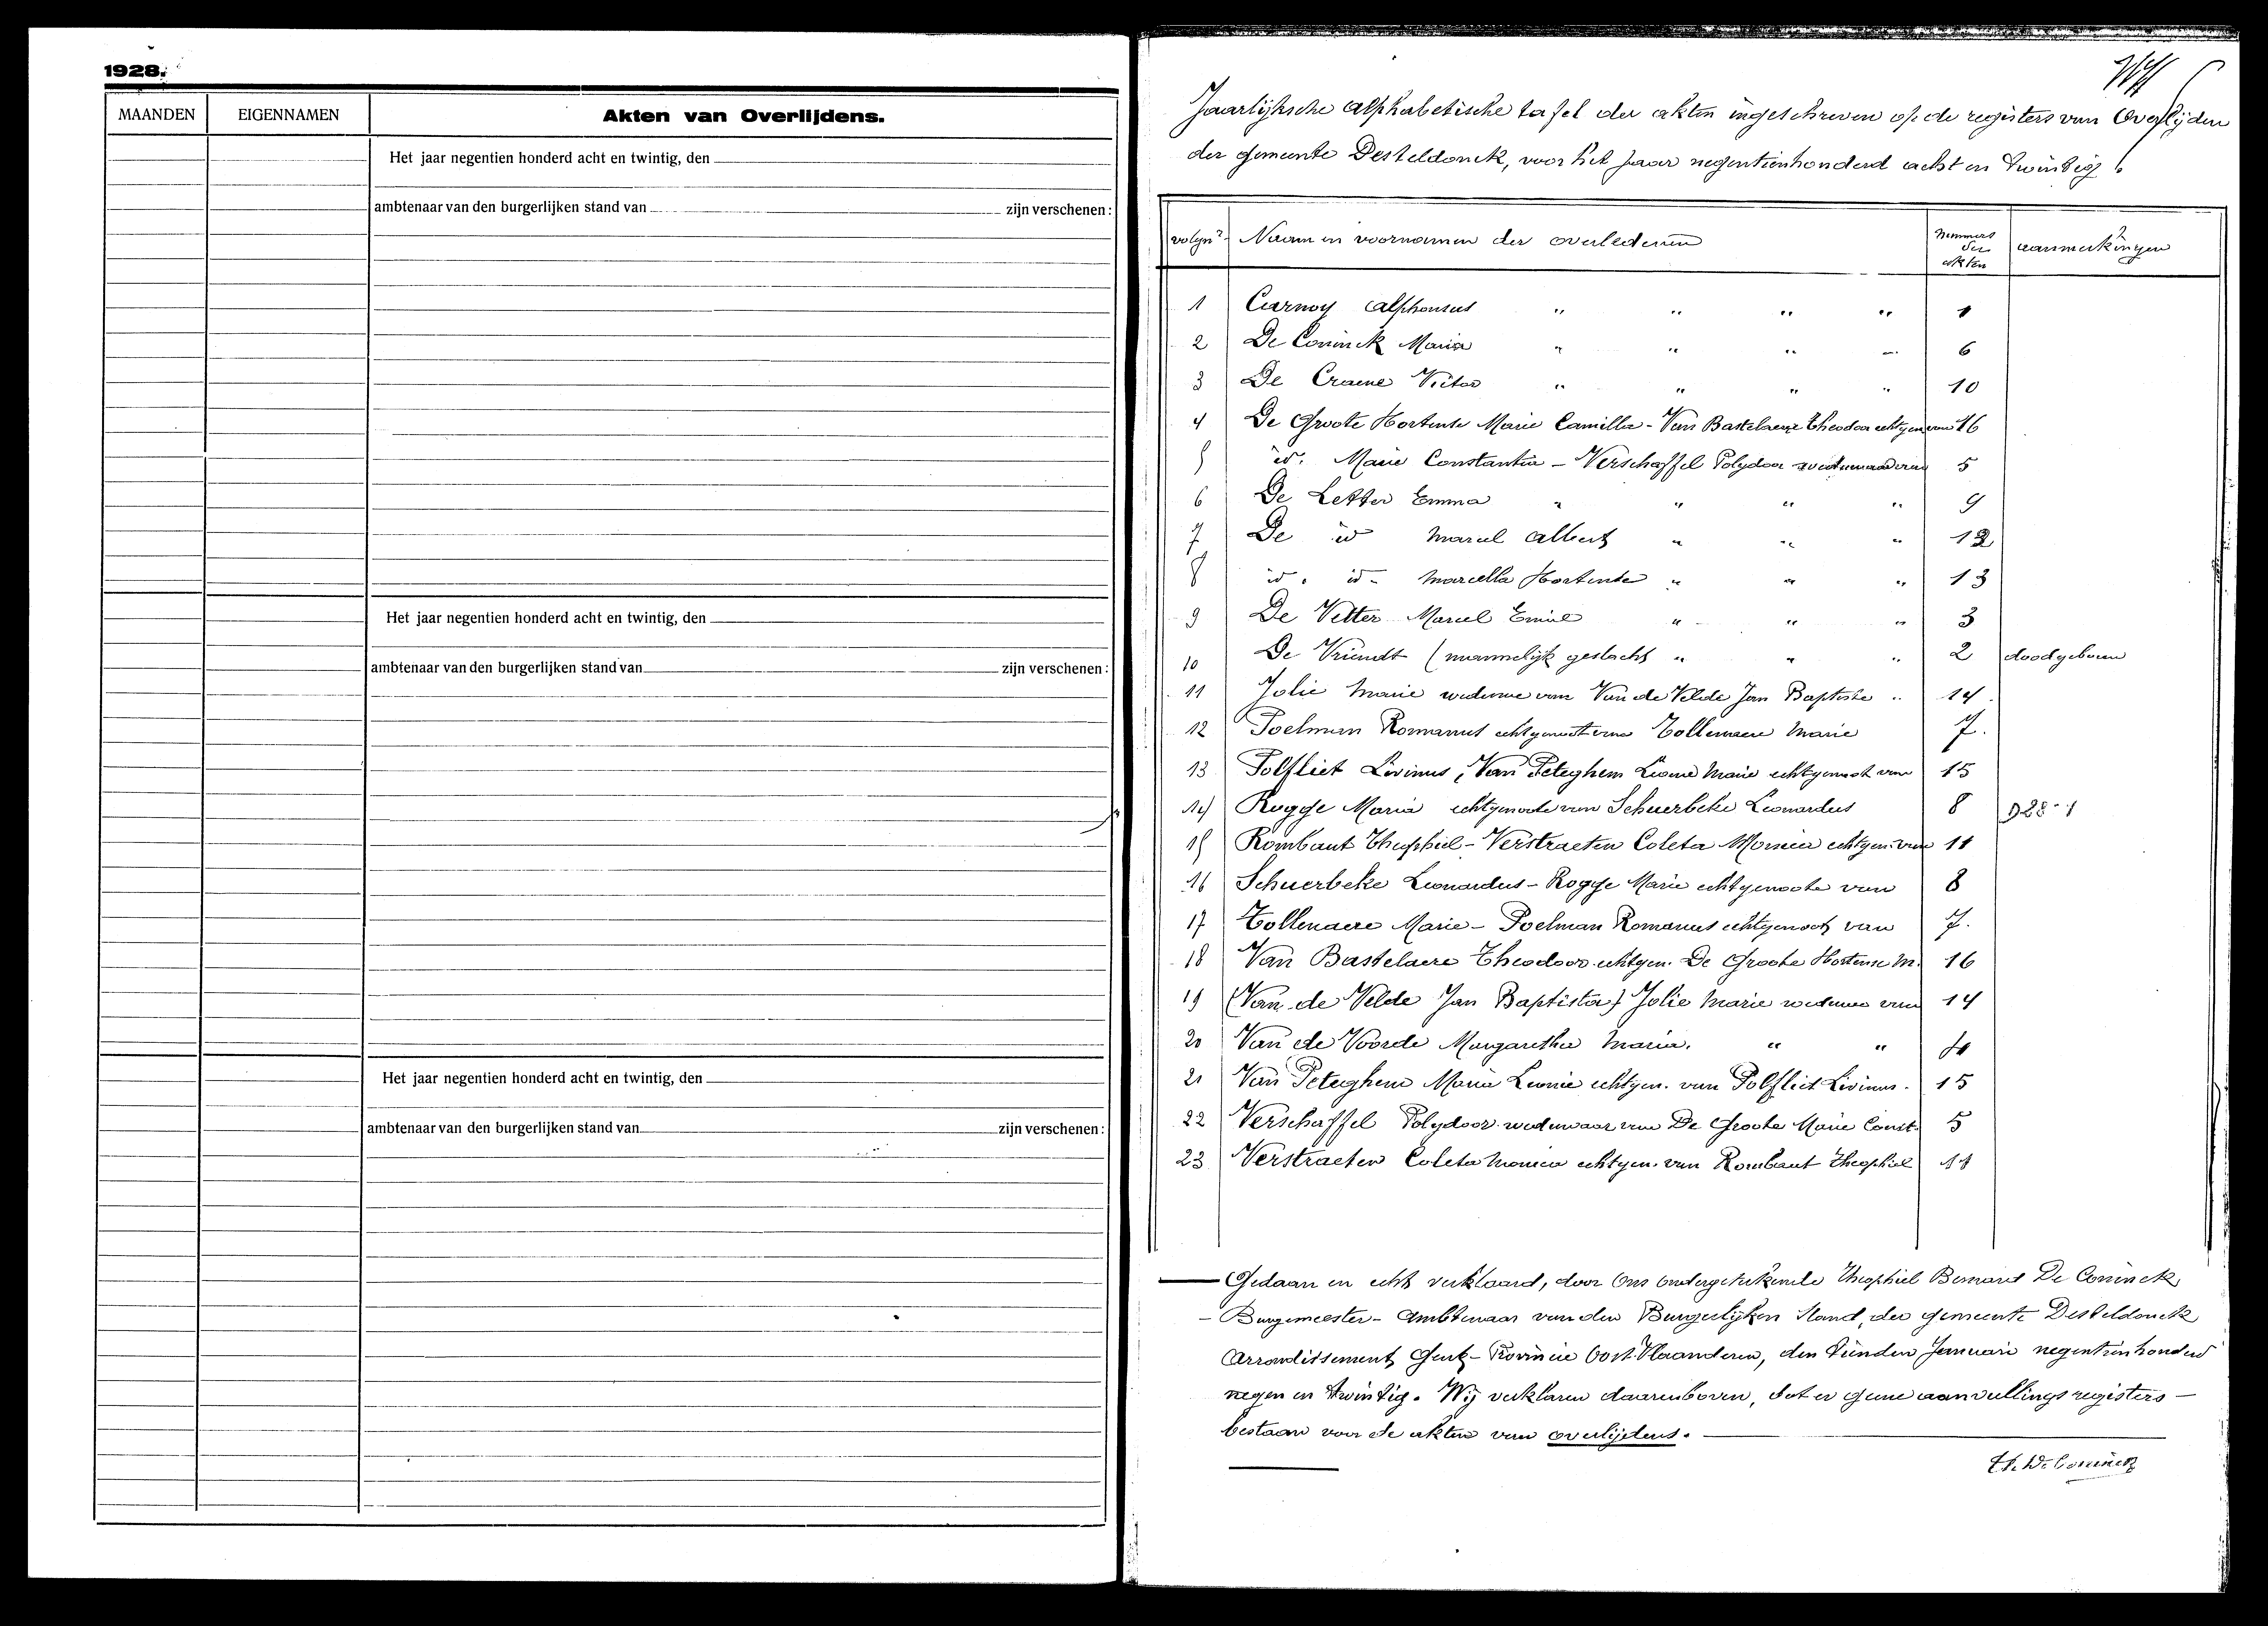 1928.
MAANDEN EIGENNAMEN Akten van Overlijdens.
Het jaar negentien honderd acht en twintig, den
ambtenaar van den burgerlijken stand van zijn verschenen:
Het jaar negentien honderd acht en twintig, den
ambtenaar van den burgerlijken stand van zijn verschenen:
Het jaar negentien honderd acht en twintig, den
ambtenaar van den burgerlijken stand van zijn verschenen:
Jaarlijksche alphabetische tafel der akten ingeschreven op de registers van Overlijden
der gemeente Desteldonck, voor het jaar negentienhonderd acht en twintig
volgnr. Naam en voornamen der overledenen Nummers der akten aanmerkingen
1 Carnoy Alphonsus " " " " 1
2 De Coninck Maria " " " " 6
3 De Craene Victor " " " " 10
4 De Groote Hortense Marie Camilla - Van Bastelaere Theodoor echtgen van 16
5 id. Marie Constantia - Verschaffel Polydoor weduwnaar van 5
6 De Letter Emma " " " " 9
7 De id Marcel Albert " " " 12
8 id. id - Marcella Hortense " " " 13
9 De Vetter Marcel Emiel " " " 3
10 De Vriendt (mannelijk geslacht " " " 2 doodgeboren
11 Jolie Marie weduwe van Van de Velde Jan Baptiste " 14
12 Poelman Romanus echtgenoot van Tollenaere Marie 7.
13 Polfliet Livinus, Van Peteghem Leonie Marie echtgenoot van 15
14 Rogge Maria echtgenoote van Schuerbeke Leonardus 8 928-1
15 Rombaut Theophiel - Verstraeten Coleta Monica echtgen. van 11
16 Schuerbeke Leonardus - Rogge Marie echtgenoote van 8
17 Tollenaere Marie - Poelman Romanus echtgenoot van 7.
18 Van Bastelaere Theodoor echtgen. De Groote Hortense M. 16
19 (Van de Velde Jan Baptista) Jolie Marie weduwe van 14
20 Van de Voorde Margaretha Maria. " " 4
21 Van Peteghem Maria Leonie echtgen. van Polfliet Livinus. 15
22 Verschaffel Polydoor weduwnaar van De Groote Marie Const. 5
23 Verstraeten Coleta Monica echtgen. van Rombaut Theophiel 11
Gedaan en echt verklaard, door Ons ondergeteekende Theophiel Bernard De Coninck
- Burgemeester - Ambtenaar van den Burgerlijken stand, der gemeente Desteldonck
Arrondissement Gent - Provincie Oost-Vlaanderen, den tienden Januari negentienhonderd
negen en twintig. Wij verklaren daarenboven, dat er geene aanvullingsregisters -
bestaan voor de akten van overlijdens.
Th. De Coninck